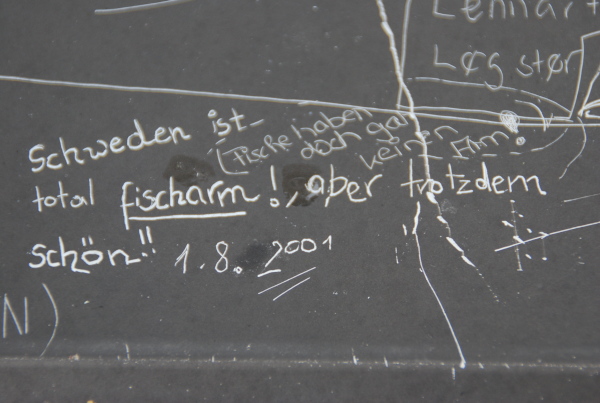 Lennart
Løgstør
Schweden ist
(Fische haben
doch gar
keinen Arm!
total fischarm!, aber trotzdem
schön!! 1.8. 2001
N)